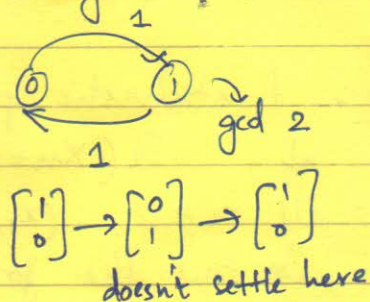 1
0 1
gcd 2
1
[1 0] → [0 1] → [1 0]
doesn't settle here